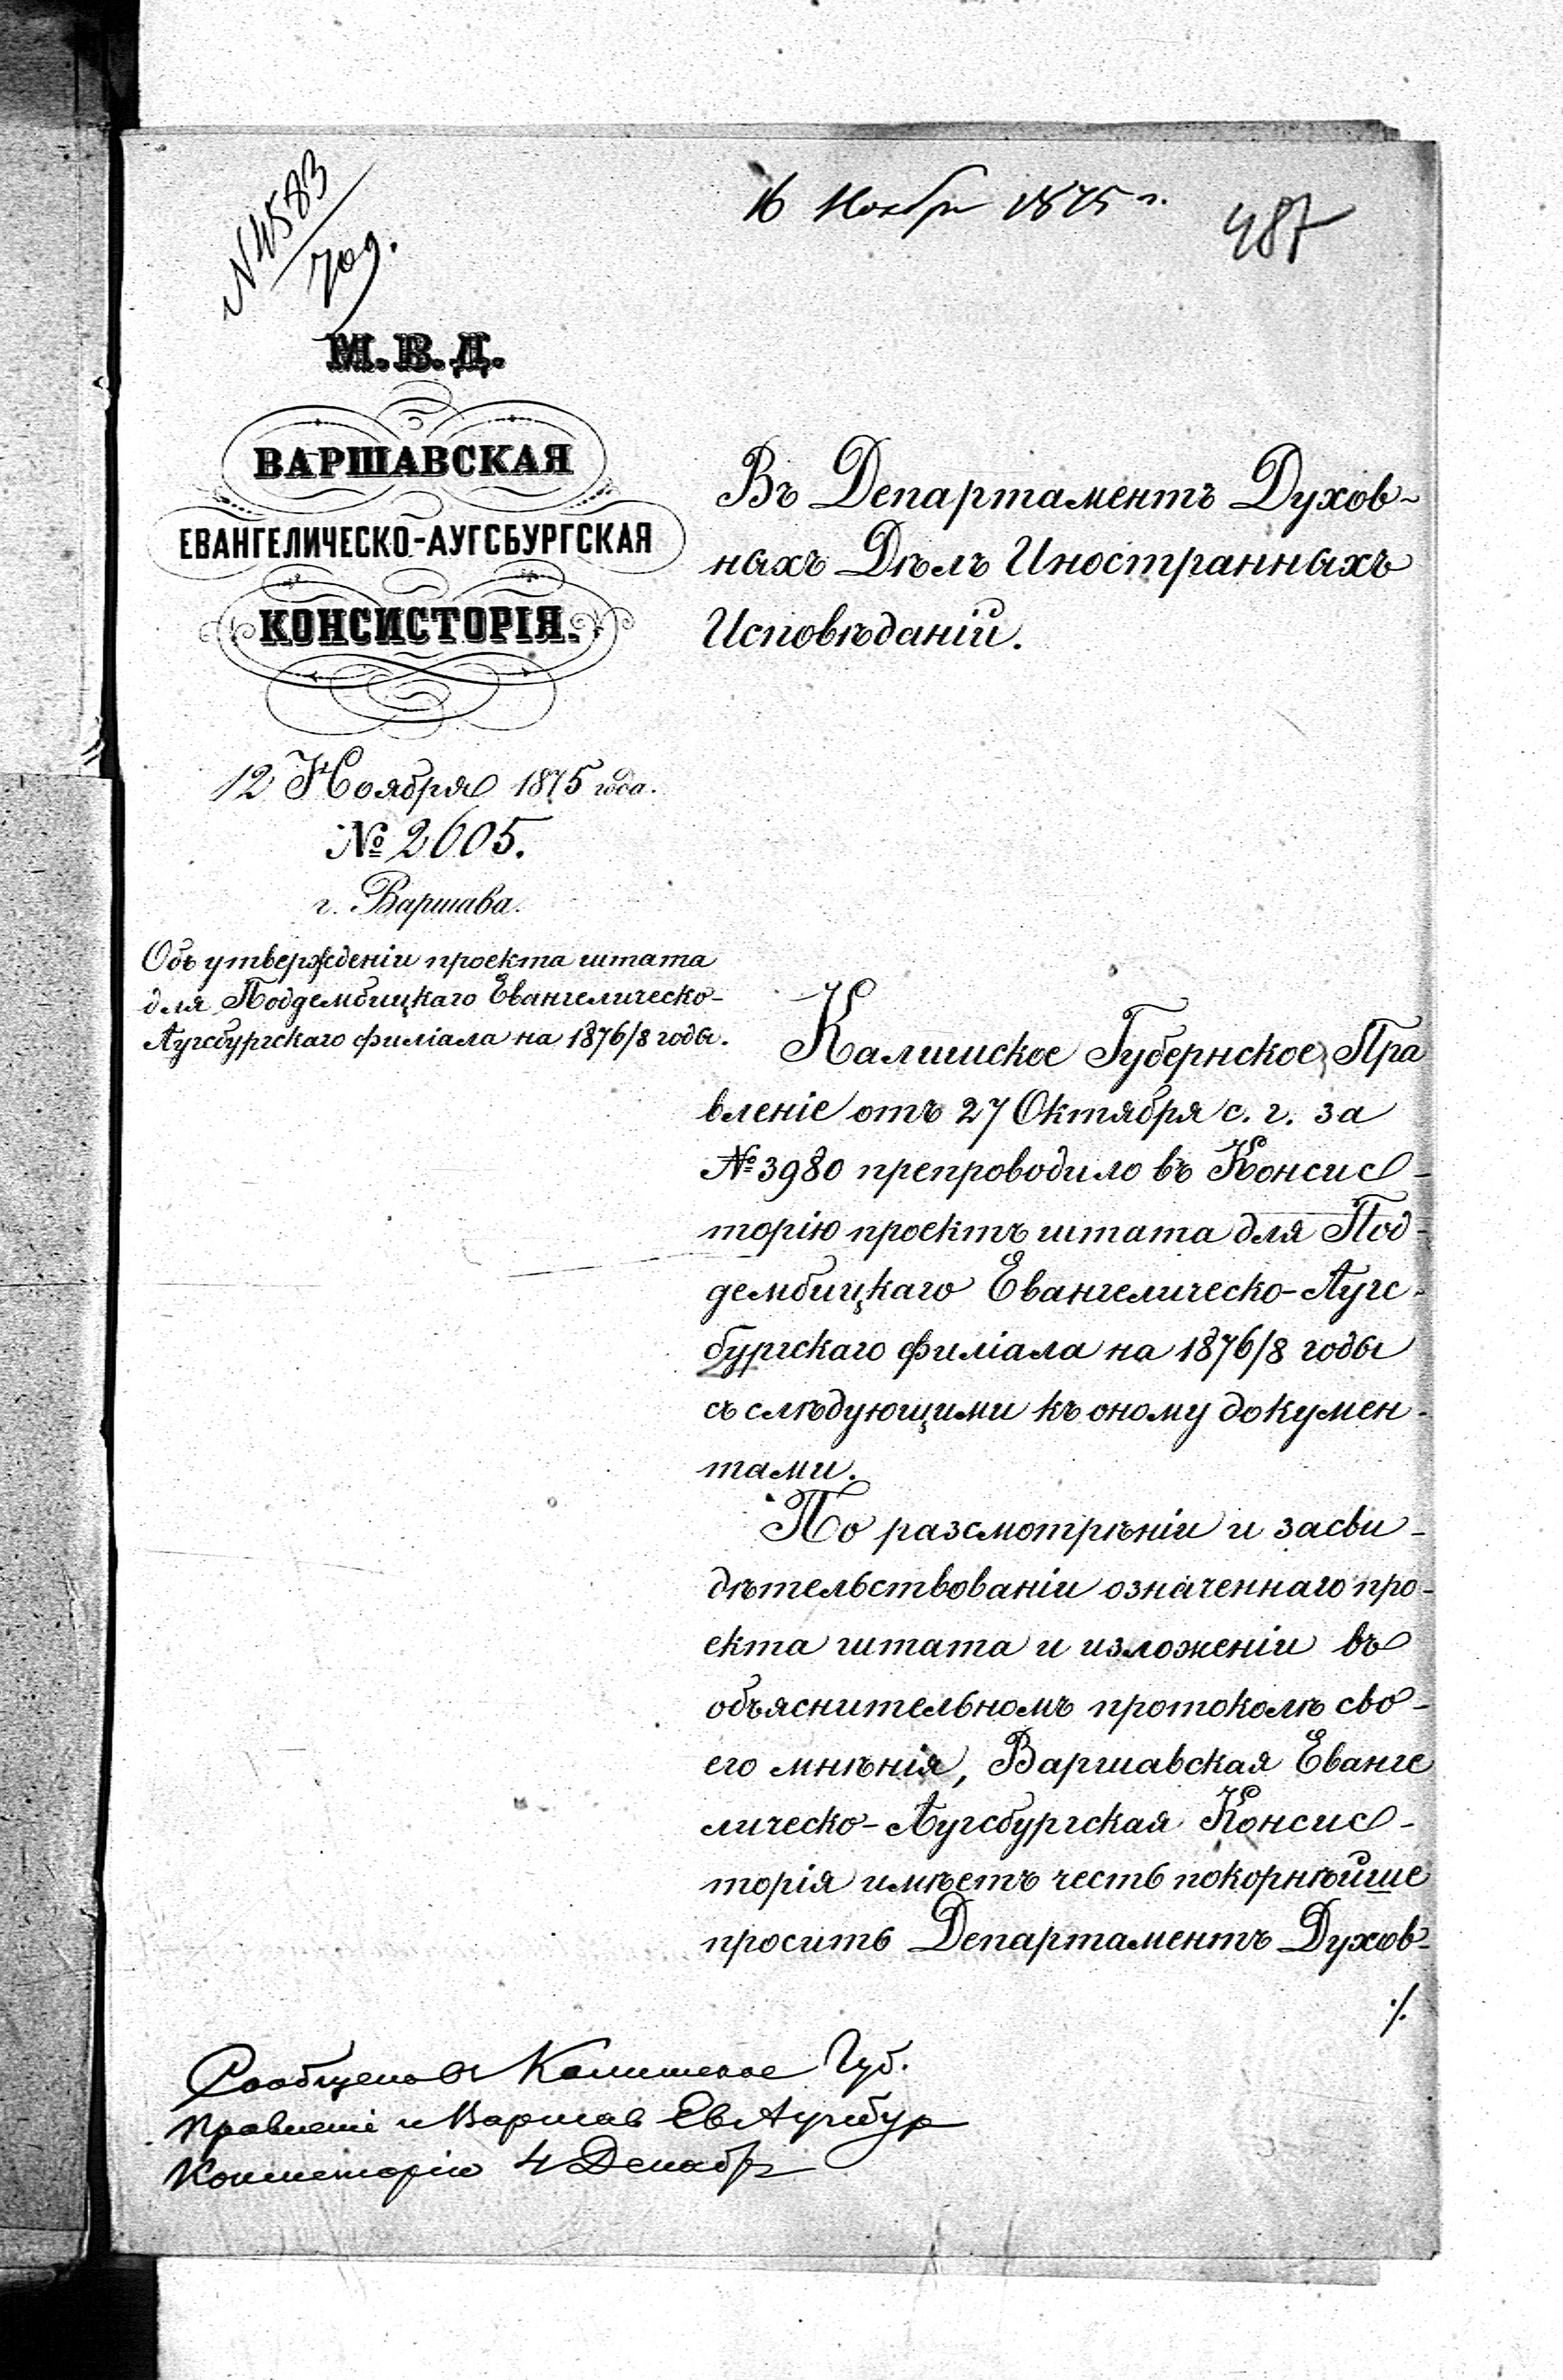 № 4583
16 Ноября 1875 г.
487
М.В.Д.
ВАРШАВСКАЯ
ЕВАНГЕЛИЧЕСКО-АУГСБУРГСКАЯ
КОНСИСТОРІЯ.
12 Ноября 1875 года.
№ 2605.
г. Варшава.
Объ утвержденіи проекта штата
для Поддембицкаго Евангелическо-
Аугсбургскаго филіала на 1876/8 годы.
Въ Департаментъ Духов-
ныхъ Дѣлъ Иностранныхъ
Исповѣданій.
Калишское Губернское Пра
вленіе отъ 27 Октября с. г. за
№ 3980 препроводило въ Консис-
торію проектъ штата для Под-
дембицкаго Евангелическо-Аугс-
бургскаго филіала на 1876/8 годы
съ слѣдующими къ оному докумен-
тами.
По разсмотрѣніи и засви-
дѣтельствованіи означеннаго про-
екта штата и изложеніи въ
объяснительномъ протоколѣ сво-
его мнѣнія, Варшавская Еванге
лическо-Аугсбургская Консис-
торія имѣетъ честь покорнѣйше
просить Департаментъ Духов-
./.
Сообщено в Калишское Губ.
Правленіе и Варшав Ев Аугсбур
Консисторію 4 Декабр